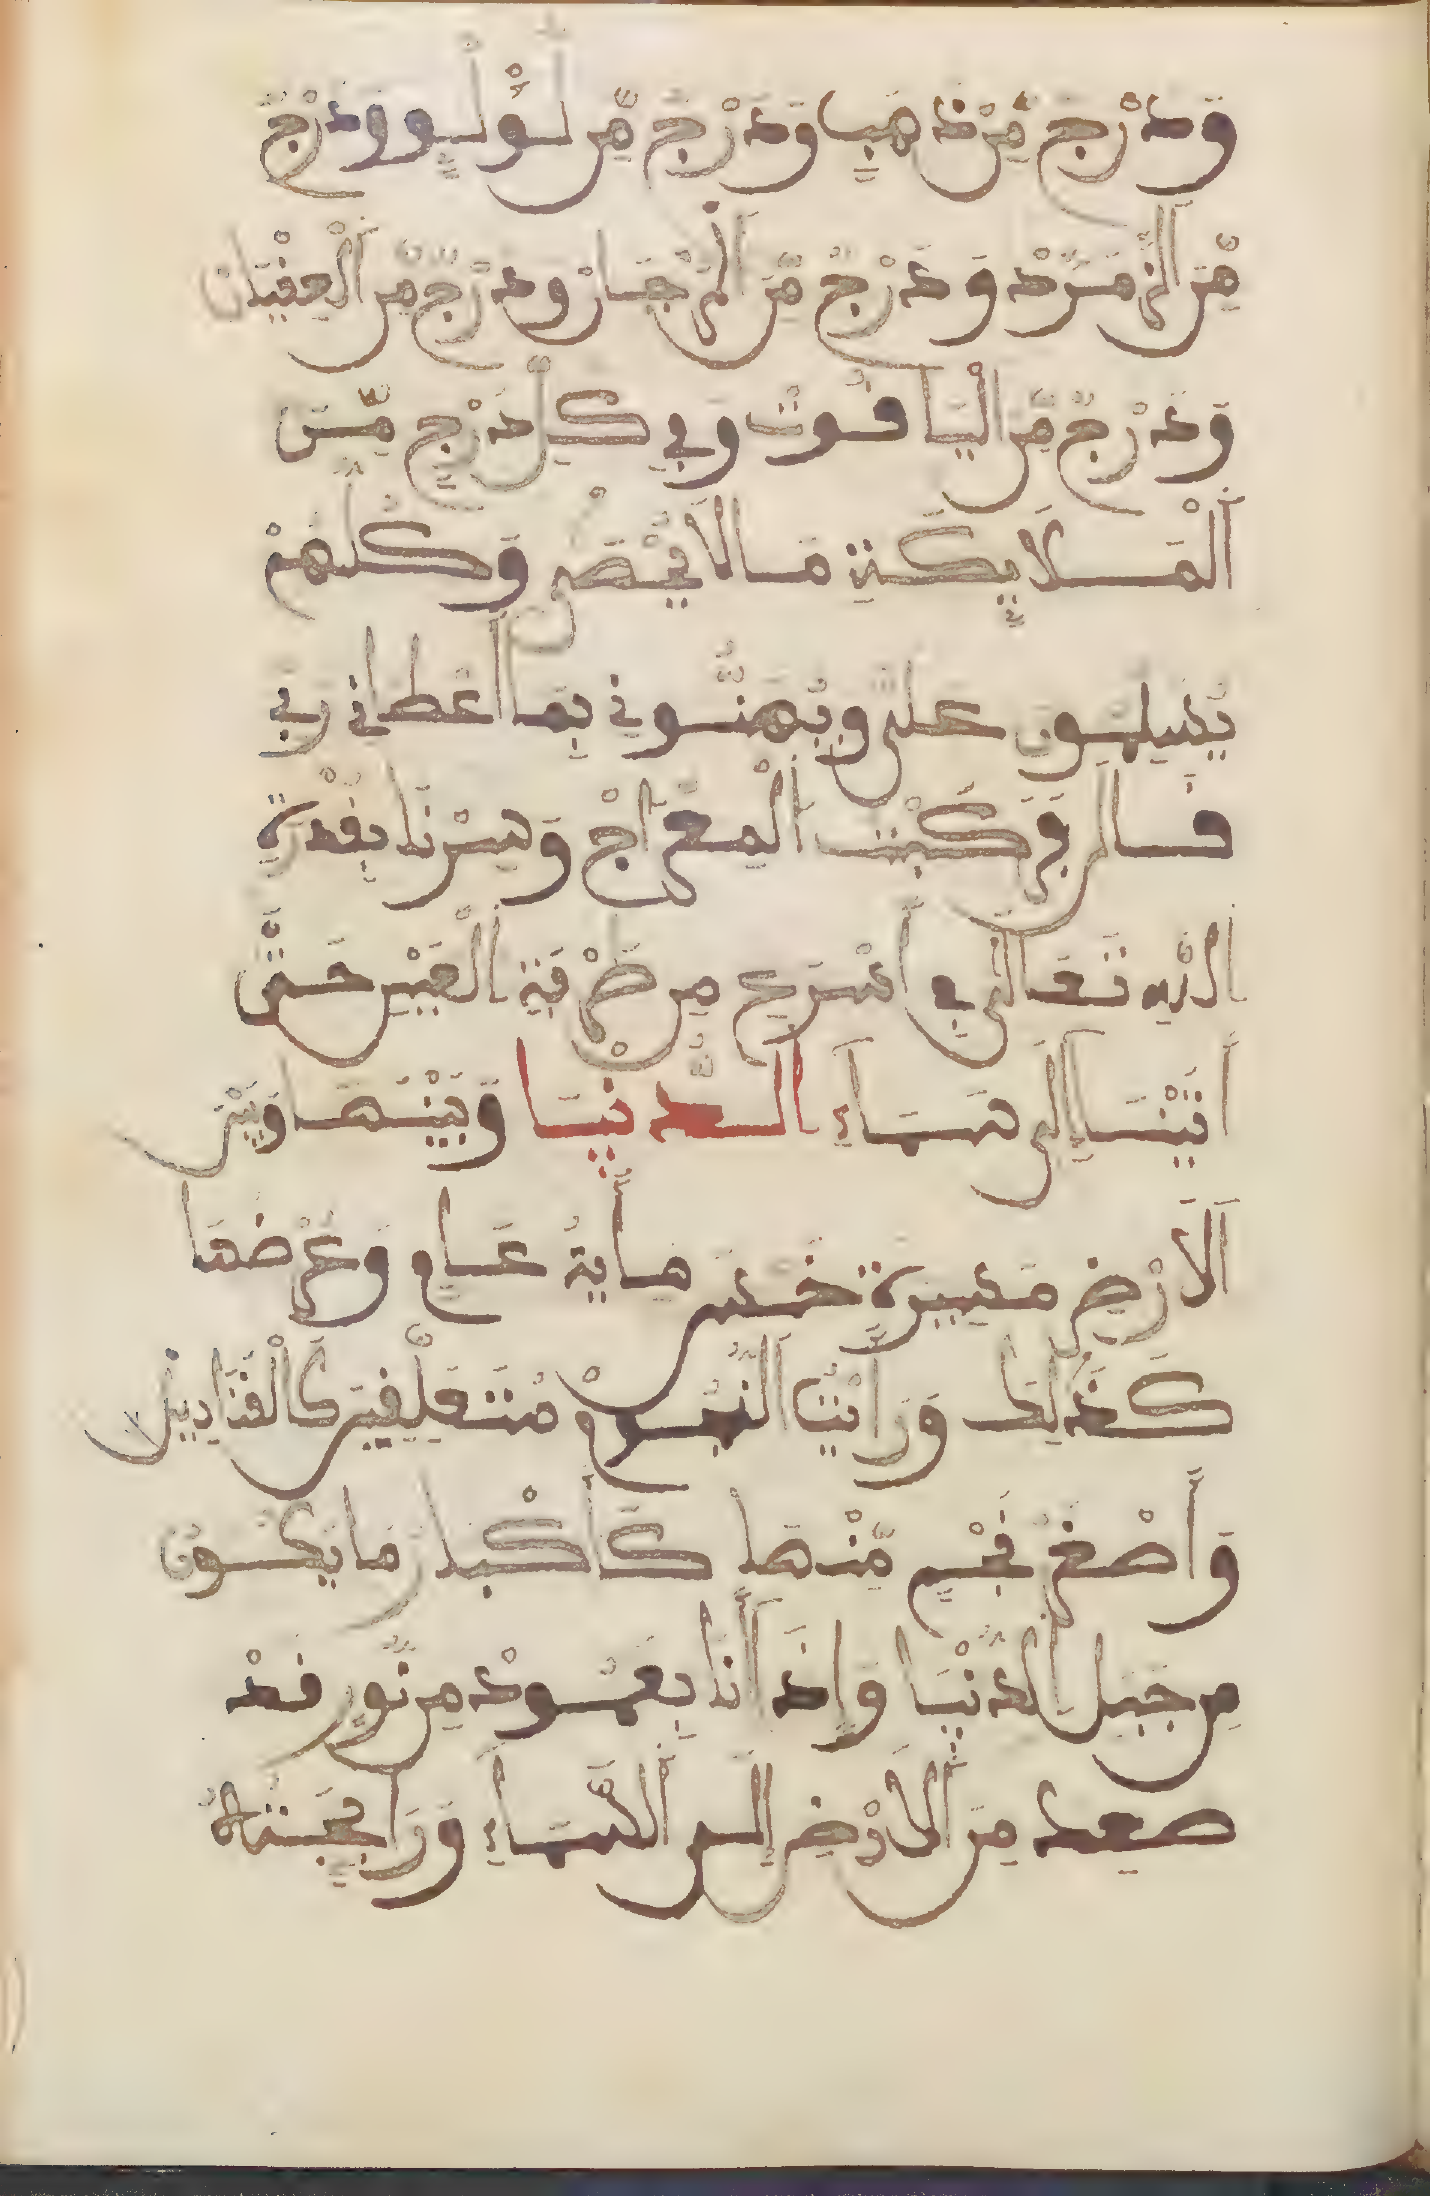 وَدَرْجٌ مِّنْ ذَهَبٍ وَدَرْجٌ مِّن لُؤْلُوٍ وَدَرْجٌ
مِّنَ الزَّمَرَّدْ وَدَرْجٌ مِّنَ الْمَرْجَانْ وَدَرْجٌ مِّنَ الْعِقْيَانْ
وَدَرْجٌ مِّنَ الْيَاقُوتْ وَفِي كُلِّ دَرْجٍ مِّنَ
الْمَلَايِكَةِ مَا لَا يُحْصَى وَكُلُّهُمْ
يُسَلِّمُونَ عَلَيَّ وَيُهَنُّونِي بِمَا أَعْطَانِي رَبِّي
قَالَ فَرَكَبْتُ الْمِعْرَاجْ وَسِرْنَا بِقُدْرَةِ
اللَّهِ تَعَالَى فِي أَسْرَعِ مِن طَرْفَةِ الْعَيْنِ حَتَّى
أَتَيْنَا إِلَى سَمَاءِ الدُّنْيَا وَبَيْنَهَا وَبَيْنَ
الْأَرْضِ مَسِيرَةُ خَمْسِ مِأْيَةِ عَامٍ وَعَرْضُهَا
كَذَالِكَ وَرَأَيْتُ النُّجُومْ مُتَعَلِّقِينَ كَالْقَنَادِيلْ
وَأَصْغَرُ نَجْمٍ مِّنْهَا كَأَكْبَرِ مَا يَكُونُ
مِن جَبَلِ الدُّنْيَا وَإِذَا أَنَا بِعَمُودْ مِن نُّورٍ قَدْ
صَعِدَ مِنَ الْأَرْضِ إِلَى السَّمَاءِ وَرَائِحَتُهُ